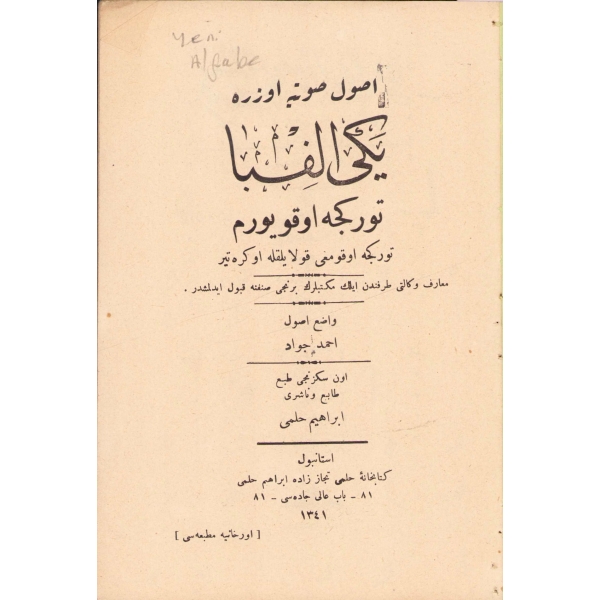 Yeni
Alfabe
اصول صوتیه اوزره
یڭی الفبا
تورکجه اوقویورم
تورکجه اوقومغی قولایلقله اوکره‌تیر
معارف وکالتی طرفندن ایلك مکتبلرك برنجی صنفنه قبول ایدلمشدر .
واضع اصول
احمد جواد
اون سکزنجی طبع
طابع وناشری
ابراهیم حلمی
استانبول
کتابخانهٔ حلمی تجارزاده ابراهیم حلمی
٨١ – باب عالی جاده‌سی – ٨١
١٣٤١
[ اورخانیه مطبعه‌سی ]